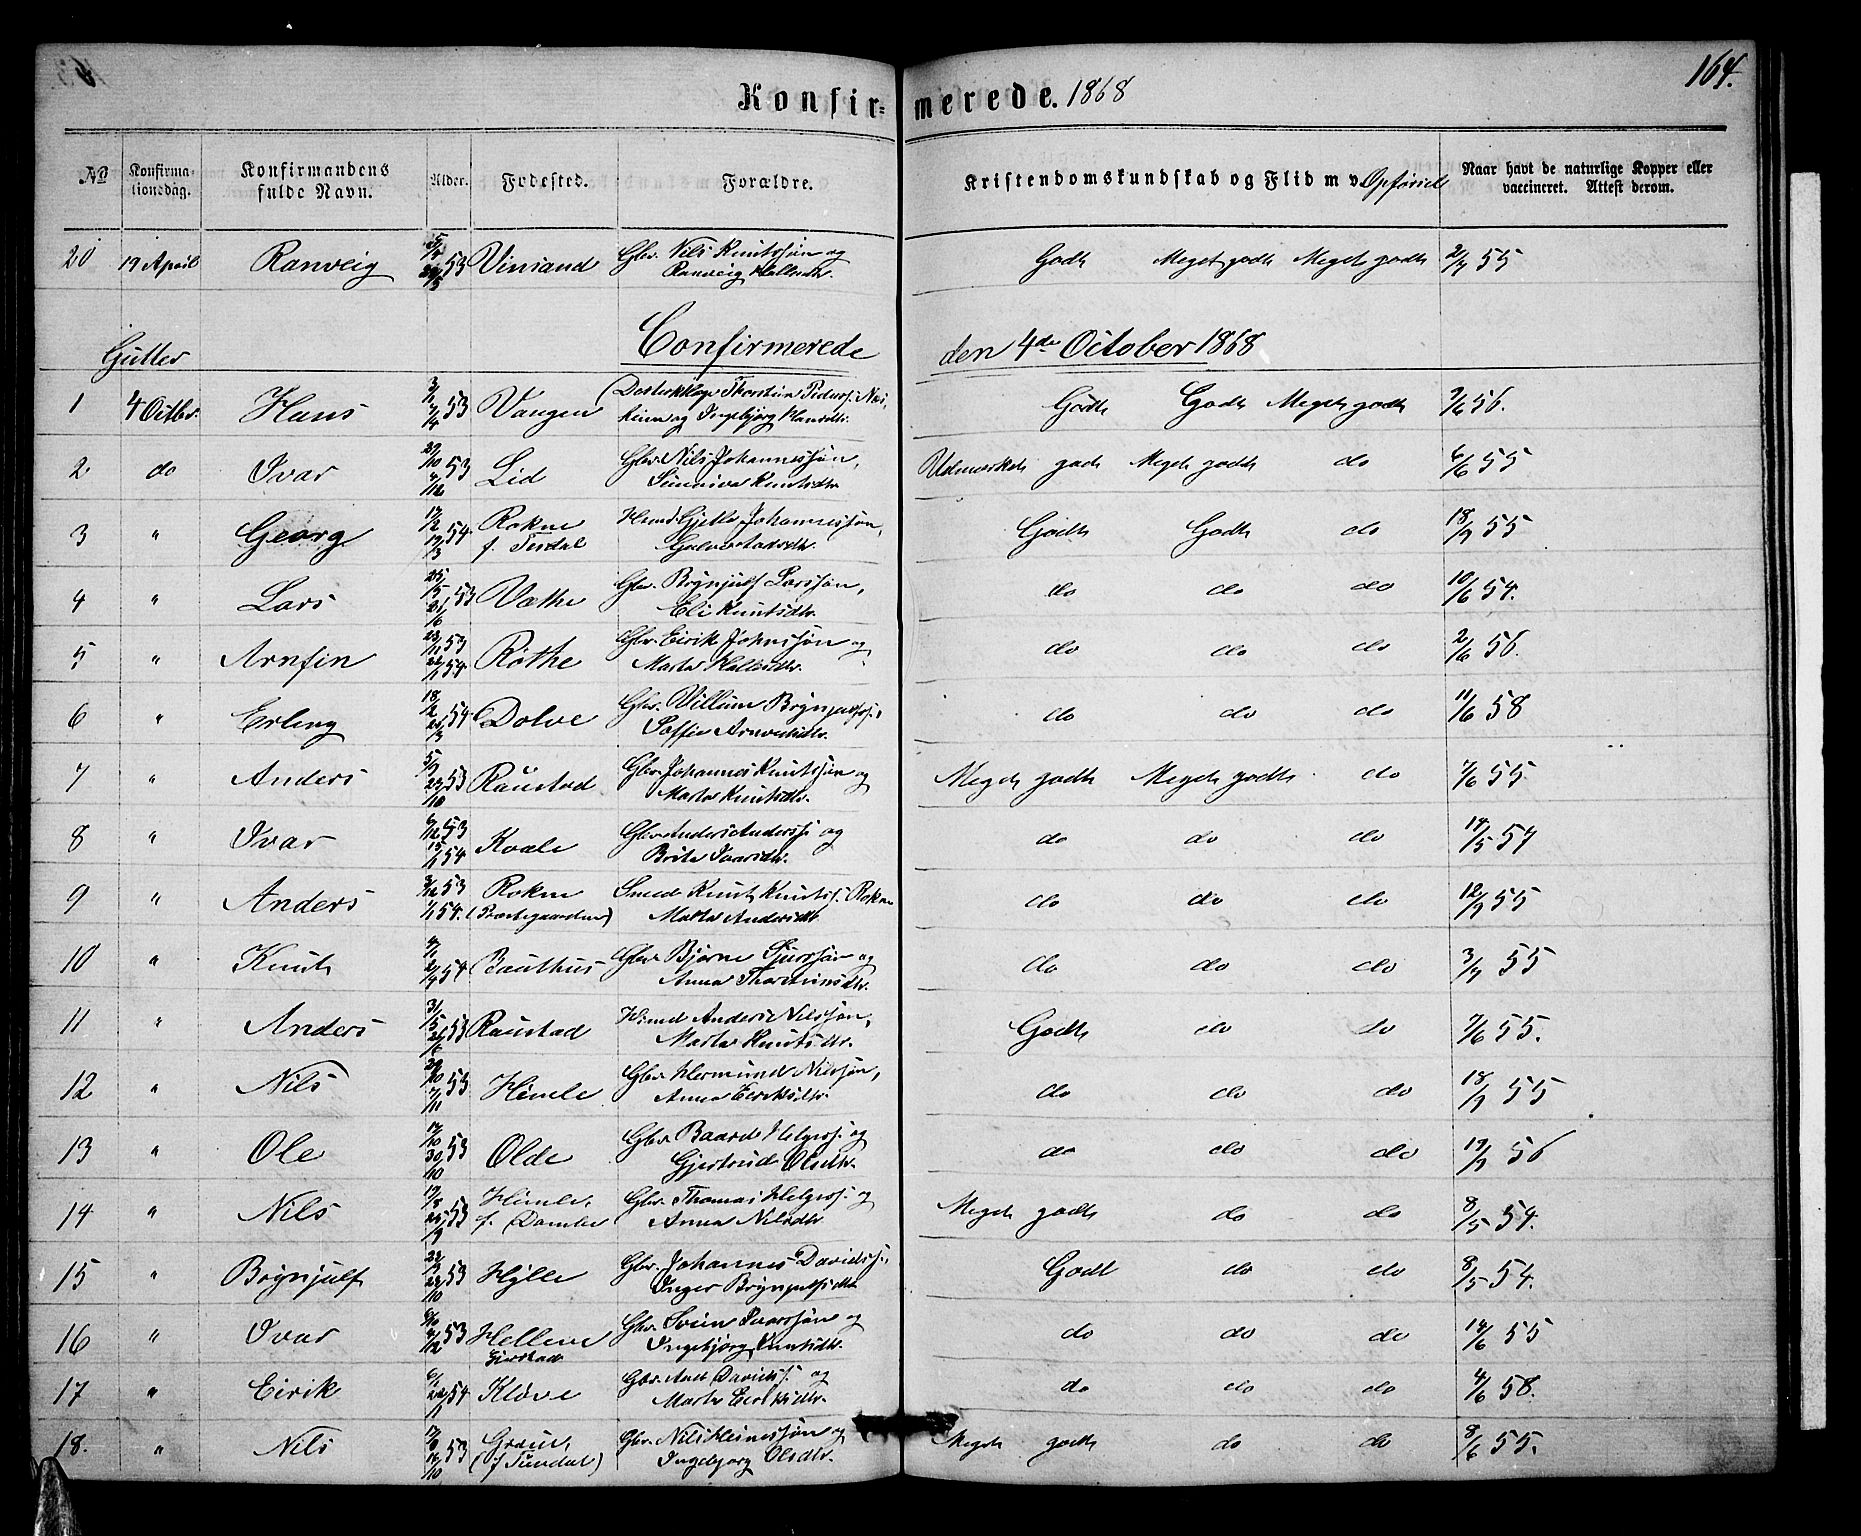 164.
Konfirmerede. 1868
No
Konfirma-
tionsdag.
Konfirmandens
fulde Navn.
Alder.
Fødested.
Forældre.
Kristendomskundskab og Flid m v. Opførsel
Naar havt de naturlige Kopper eller
vaccineret. Attest derom.
20 19 April Ranveig 53 Vinsand Gbr. Nils Knutssøn og
Ranveig Hellesdtr. Godt Meget godt Meget godt 2/7 55
Confirmerede den 4de October 1868
Gutter
1 4 Octbr. Hans 3/1 53 Vangen Thorstein Peders:
og Ingebjørg Hansdtr. Godt Godt Meget godt 56.
2 do Ivar 29/10 53 Lid Gbr. Nils Johannessøn,
Sunniva Knutsdtr. Udmærket godt Meget godt do 6/6 55
3 " Georg 17/2 54 Rokne Hmd. Gjetle Johannessøn,
17/3 f. Tesdal Godt Godt do 18/9 55
4 " Lars 25/5 53 Væthe Gbr. Brynjulf Larssøn,
21/6 Eli Knutsdtr. do do do 10/6 54.
5 " Arnfin 23/11 53 Røthe Gbr. Eirik Johnssøn og
22/1 54 Marta do do do 2/6 56.
6 " Erling 18/2 54 Dolve Gbr. Villum Brynjulfss:,
Soffie do do do 11/6 58
7 " Anders 5/9 53 Raustad Gbr. Johannes Knutssøn og
22/10 Marta Knutsdtr. Meget godt Meget godt do 7/6 55
8 " Ivar 6/12 53 Kvale Gbr. Anders Anderss: og
15/1 54 Brita Ivarsdtr. do do do 14/5 54
9 " Anders 3/12 53 Rokne Smed Knut Knutss: Rokne
1/1 54. Marta Andersdtr do do do 12/9 55
10 " Knut 54 Bauthus Gbr. Bjørne Sjurssøn og
Anna Thorsteinsdtr. do do do 3/7 55
11 " Anders 31/5 53 Raustad Hmd Anders Nilssøn,
Marta Knutsdtr. Godt do do 7/6 55.
12 " Nils 29/10 53 Himle Gbr. Hermund Nilssøn,
Anna Eiriksdtr. do do do 18/9 55
13 " Ole 17/10 53 Olde Gbr. Baard Helgess: og
30/10 Gjertrud Olsdtr. do do do 19/9 56
14 " Nils 17/8 53 Himle, Gbr. Thomas Helgess: og
25/9 Anna Nilsdtr Meget godt do do 8/5 54.
15 " Brynjulf 22/9 53 Hylle Gbr. Johannes Davidss:,
23/10 Inger Brynjulfsdtr Godt do do 8/5 54.
16 " Ivar 53 Helleve Gbr. Svein Ivarssøn og
Gjerstad Ingebjørg Knutsdtr. do do do 14/6 55
17 " Eirik 6/1 54 Kløve Gbr. And Davidss: og
22/1 Marta Eiriksdtr. do do do 4/6 58.
18. " Nils 53 Græue, Gbr. Nils Heinessøn og
16/10 Ingebjørg Olsdtr. Meget godt do do 8/6 55.